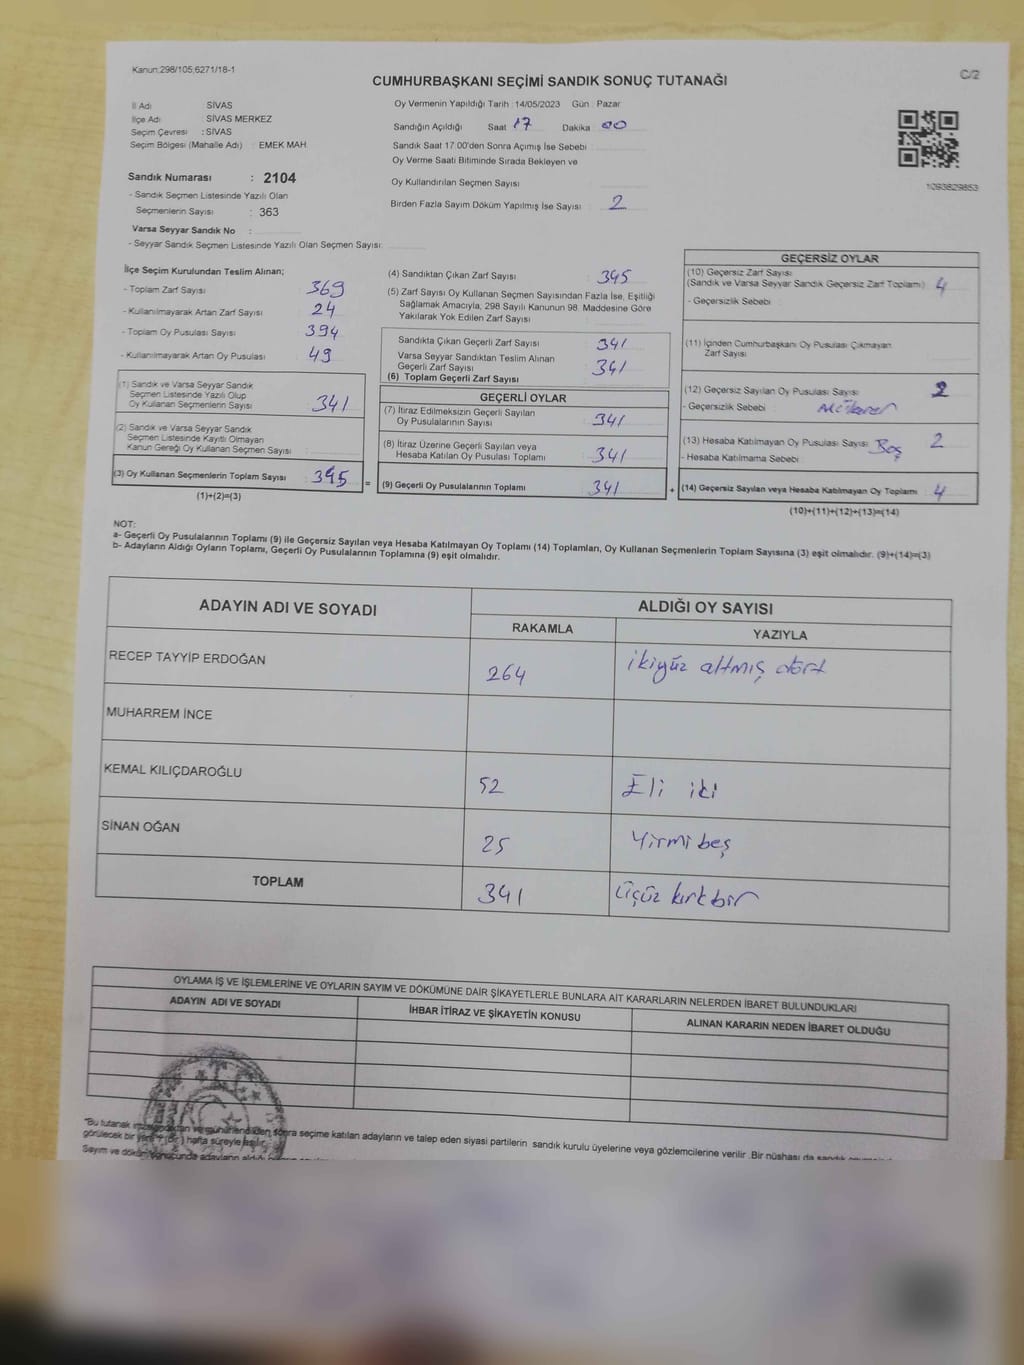 Kanun:298/105;6271/18-1
C/2
CUMHURBAŞKANI SEÇİMİ SANDIK SONUÇ TUTANAĞI
İl Adı SİVAS
İlçe Adı SİVAS MERKEZ
Seçim Çevresi : SİVAS
Seçim Bölgesi (Mahalle Adı) : EMEK MAH.
Sandık Numarası : 2104
- Sandık Seçmen Listesinde Yazılı Olan
Seçmenlerin Sayısı : 363
Varsa Seyyar Sandık No :
- Seyyar Sandık Seçmen Listesinde Yazılı Olan Seçmen Sayısı:
Oy Vermenin Yapıldığı Tarih :14/05/2023 Gün : Pazar
Sandığın Açıldığı Saat 17 Dakika : 00
Sandık Saat 17.00'den Sonra Açımış İse Sebebi :
Oy Verme Saati Bitiminde Sırada Bekleyen ve
Oy Kullandırılan Seçmen Sayısı :
Birden Fazla Sayım Döküm Yapılmış İse Sayısı : 2
1093629853
İlçe Seçim Kurulundan Teslim Alınan;
- Toplam Zarf Sayısı : 369
- Kullanılmayarak Artan Zarf Sayısı : 24
- Toplam Oy Pusulası Sayısı : 394
- Kullanılmayarak Artan Oy Pusulası : 49
(1) Sandık ve Varsa Seyyar Sandık
Seçmen Listesinde Yazılı Olup
Oy Kullanan Seçmenlerin Sayısı : 341
(2) Sandık ve Varsa Seyyar Sandık
Seçmen Listesinde Kayıtlı Olmayan
Kanun Gereği Oy Kullanan Seçmen Sayısı :
(3) Oy Kullanan Seçmenlerin Toplam Sayısı : 345
(1)+(2)=(3)
(4) Sandıktan Çıkan Zarf Sayısı : 345
(5) Zarf Sayısı Oy Kullanan Seçmen Sayısından Fazla İse, Eşitliği
Sağlamak Amacıyla, 298 Sayılı Kanunun 98. Maddesine Göre
Yakılarak Yok Edilen Zarf Sayısı :
Sandıkta Çıkan Geçerli Zarf Sayısı : 341
Varsa Seyyar Sandıktan Teslim Alınan
Geçerli Zarf Sayısı : 341
(6) Toplam Geçerli Zarf Sayısı
GEÇERLİ OYLAR
(7) İtiraz Edilmeksizin Geçerli Sayılan
Oy Pusulasının Sayısı : 341
(8) İtiraz Üzerine Geçerli Sayılan veya
Hesaba Katılan Oy Pusulası Toplamı : 341
= (9) Geçerli Oy Pusulalarının Toplamı : 341
GEÇERSİZ OYLAR
(10) Geçersiz Zarf Sayısı
(Sandık ve Varsa Seyyar Sandık Geçersiz Zarf Toplamı) : 4
- Geçersizlik Sebebi :
(11) İçinden Cumhurbaşkanı Oy Pusulası Çıkmayan
Zarf Sayısı :
(12) Geçersiz Sayılan Oy Pusulası Sayısı : 2
- Geçersizlik Sebebi :
(13) Hesaba Katılmayan Oy Pusulası Sayısı : Boş 2
- Hesaba Katılmama Sebebi :
+ (14) Geçersiz Sayılan veya Hesaba Katılmayan Oy Toplamı : 4
(10)+(11)+(12)+(13)=(14)
NOT:
a- Geçerli Oy Pusulalarının Toplamı (9) ile Geçersiz Sayılan veya Hesaba Katılmayan Oy Toplamı (14) Toplamları, Oy Kullanan Seçmenlerin Toplam Sayısına (3) eşit olmalıdır. (9)+(14)=(3)
b- Adayların Aldığı Oyların Toplamı, Geçerli Oy Pusulalarının Toplamına (9) eşit olmalıdır.
ADAYIN ADI VE SOYADI ALDIĞI OY SAYISI
RAKAMLA YAZIYLA
RECEP TAYYİP ERDOĞAN 264 ikiyüz altmış dört
MUHARREM İNCE
KEMAL KILIÇDAROĞLU 52 Eli iki
SİNAN OĞAN 25 Yirmi beş
TOPLAM 341 Üçüz kırkbir
OYLAMA İŞ VE İŞLEMLERİNE VE OYLARIN SAYIM VE DÖKÜMÜNE DAİR ŞİKAYETLERLE BUNLARA AİT KARARLARIN NELERDEN İBARET BULUNDUKLARI
ADAYIN ADI VE SOYADI İHBAR İTİRAZ VE ŞİKAYETİN KONUSU ALINAN KARARIN NEDEN İBARET OLDUĞU
"Bu tutanak sonra seçime katılan adayların ve talep eden siyasi partilerin sandık kurulu üyelerine veya gözlemcilerine verilir .Bir nüshası da sandık
görülecek bir yere 1 (bir ) hafta süreyle asılır.
Sayım ve döküm sonucunda adayların aldığı